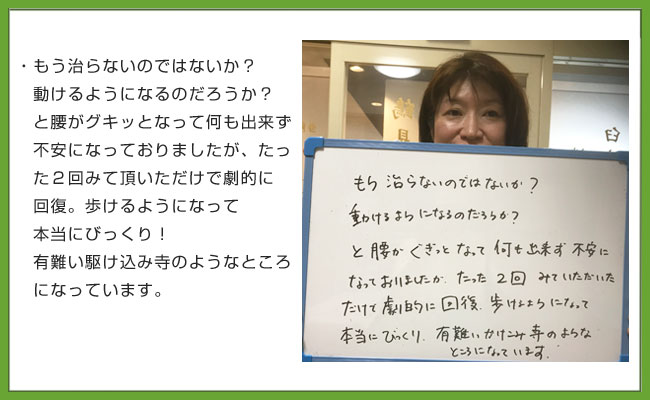 ・もう治らないのではないか？
動けるようになるのだろうか？
と腰がグキッとなって何も出来ず
不安になっておりましたが、たっ
た２回みて頂いただけで劇的に
回復。歩けるようになって
本当にびっくり！
有難い駆け込み寺のようなところ
になっています。
もう治らないのではないか？
動けるようになるのだろうか？
と腰がぐぎっとなって何も出来ず不安に
なっておりましたが、たった2回みていただいた
だけで劇的に回復、歩けるようになって
本当にびっくり、有難いかけこみ寺のような
ところになっています。